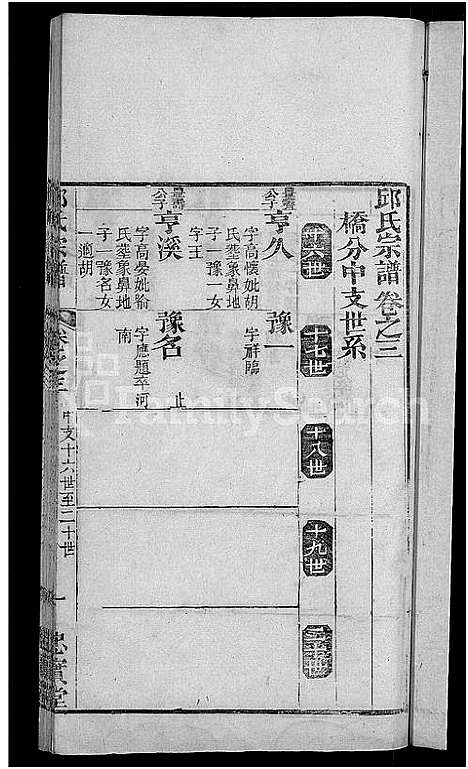 邱氏宗譜卷之三
橋分中支世系
十六世
十七世
十八世
十九世
二十世
公子
亨久
字高懷妣胡
氏塟象鼻地
子一豫一女
字王
豫一
字祥臨
公子
亨溪
字高晏妣喻
氏塟象鼻地
子一豫名女
一適胡
豫名
字應題卒河
南
止
邱氏宗譜
卷之三
中支十六世至二十世
一
忠實堂
FamilySearch